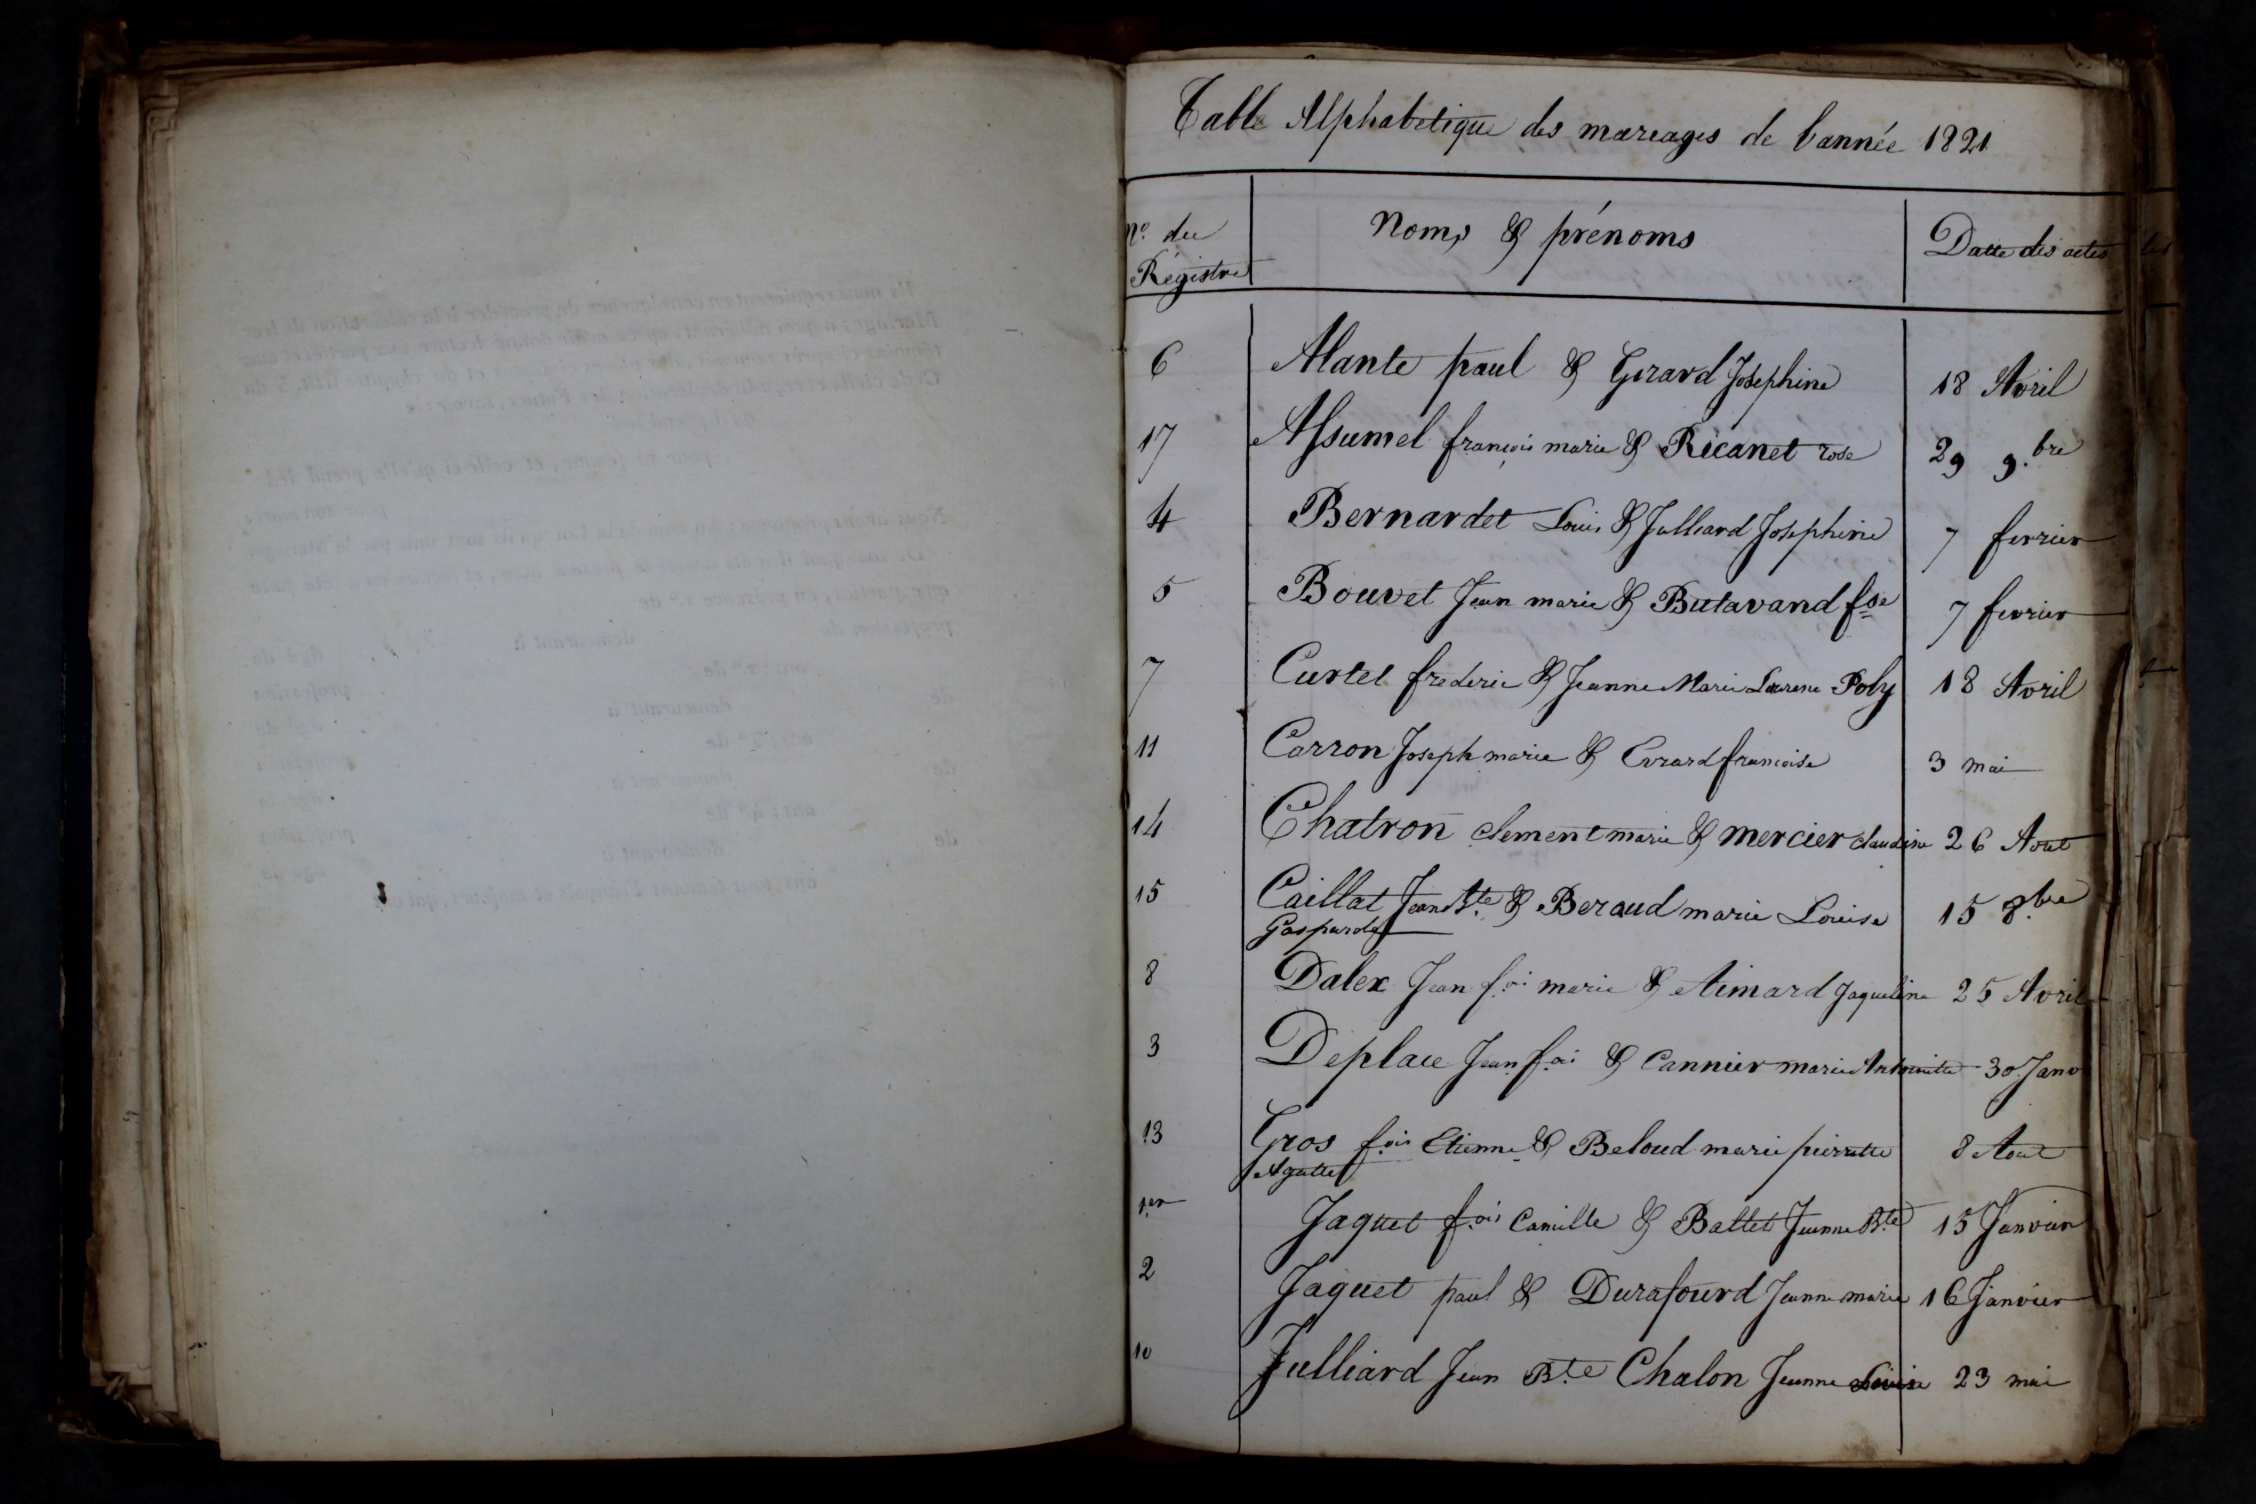 Table Alphabetique des mareages de l'année 1821
No. du Régistre Noms & prénoms Datte des actes
6 Alante paul & Girard Josephine 18 Avril
17 Assumel françois marie & Récanet rose 29 9.bre
4 Bernardet Louis & Julliard Josephine 7 fevrier
5 Bouvet Jean marie & Butavand fse 7 fevrier
7 Curtet frederic & Jeanne Marie Laurence Poly 18 Avril
11 Carron Joseph marie & Evrard francoise 3 mai
14 Chatron clement marie & mercier claudine 26 Aout
15 Caillat Jean Bte & Beraud marie Louise 15 8.bre
Gasparde
8 Dalex Jean f.oi marie & Aimard Jaqueline 25 Avril
3 Deplace Jean f.oi & Cannier marie Antoinette 30 Janv
13 Gros f.ois Etienne & Beloud marie pierrette 8 Aout
Agatte
1.er Jaquet f.ois Camille & Ballet Jeanne B.te 15 Janvier
2 Jaquet paul & Durafourd Jeanne marie 16 Janvier
10 Julliard Jean B.te Chalon Jeanne Louise 23 mai